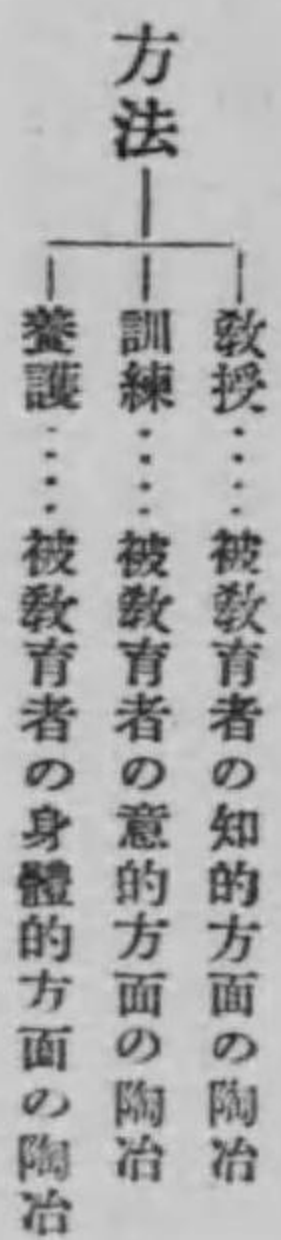 方法
教授‥‥被教育者の知的方面の陶冶
訓練‥‥被教育者の意的方面の陶冶
養護‥‥被教育者の身體的方面の陶冶